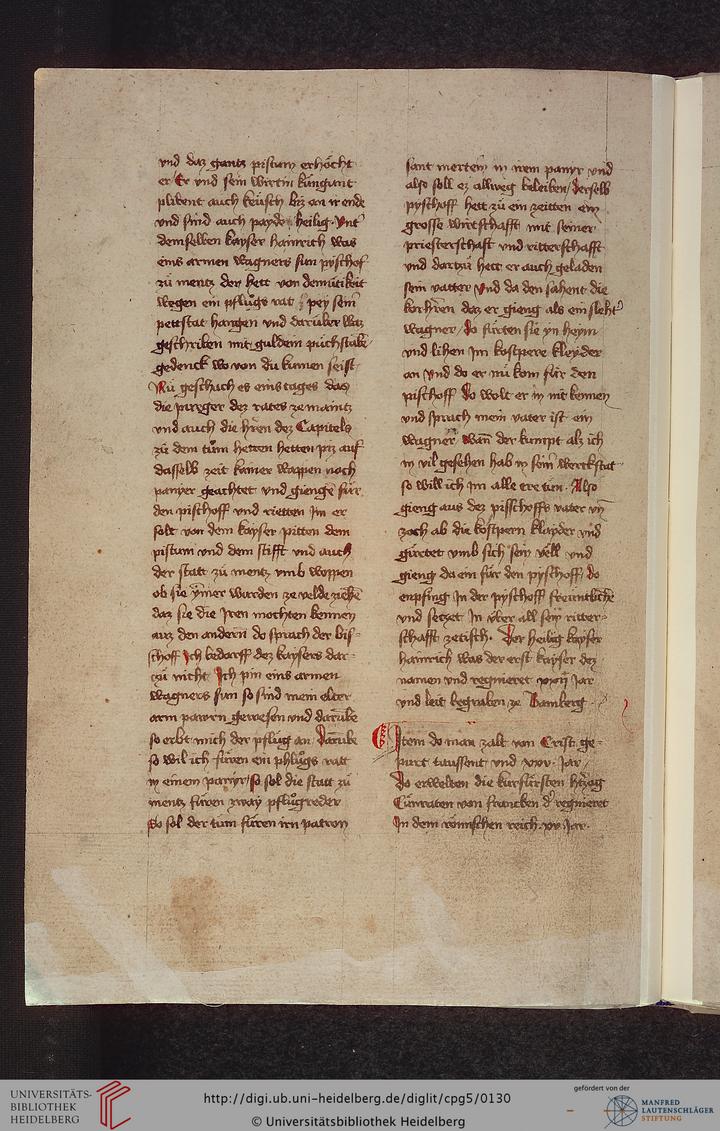 vnd daz gantz pistum erhöcht
er Er vnd sein wirtin küngunt
plibent auch keüsch biz an ir ende
vnd sind auch payde heilig. Vnt
demselben kayser hainrich was
eins armen wagners sun pyschof
zü mentz der hett von demütikeit
wegen ein pflügs rat pey sein
pettstat hangen vnd darüber waz
geschriben mit guldem püchstabē
gedenck wo von du kumen seist
Nü geschach es eins tages daz
die purger dez rates ze maintz
vnd auch die hren dez Capitels
zü dem tüm hetten
dasselb zeit kainer wappen noch
panyer geachtet vnd giengē für
den pischoff vnd rietten im er
solt von dem kayser pitten dem
pistum vnd dem stifft vnd auch
der statt zü mentz vmb woppen
ob sie ymer wurden ze velde ziehē
daz sie die Iren mochten kennen
auz den andern do sprach der bis-
schoff Ich bedarff dez kaysers dar-
zü nicht Ich pin eins armen
wagners sun so sind mein elter
arm pawrn gewesen vnd darūbe
so erbt mich der pflüg an Darūbe
so wil ich füren ein phlügs ratt
in einem panyr so sol die statt zü
mentz füren zway pflügreder
So sol der tüm füren irn patron
sant mertein in irem panyr vnd
also soll ez allweg beleiben Derselb
pyschoff hett zü ein zeitten ein
grosse wirtschafft mit seiner
priesterschaft vnd ritterschafft
vnd dartzü hett er auch geladen
sein vatter Vnd da den sahent die
korhren daz er gieng als ein slehtʼ
wagner Do fürten sie yn heym
vnd lihen Im kostpere kleyder
an Vnd do er nü kom für den
pischoff Do wolt er in nit kennen
vnd sprach mein vater ist ein
wagner Wan̄ der kumpt alz ich
in vil gesehen hab in sein̄ werckstat
so will ich im alle ere tun Also
gieng aus dez pisschoffs vater vn̄
zoch ab die kostpern klayder vnd
gürtet vmb sich sein vell vnd
gieng da ein für den pyschoff Do
enpfing In der pyschoff freuntlichē
vnd setzet In vber all sein ritter-
schafft ze tisch. Der heilig kayser
hainrich was der erst kayser dez
namen vnd regnieret xxij Jar
vnd leit begraben ze Bamberg
Item do man zalt von Crist ge-
purt taussent vnd xxv Jar
Do erwelten die kurfürsten htzog
Cunraten von francken dʼ regnieret
In dem römischen reich xv Jar
UNIVERSITÄTS-
BIBLIOTHEK
HEIDELBERG
http://digi.ub.uni-heidelberg.de/diglit/cpg5/0130
© Universitätsbibliothek Heidelberg
gefördert von der
MANFRED
LAUTENSCHLÄGER
STIFTUNG